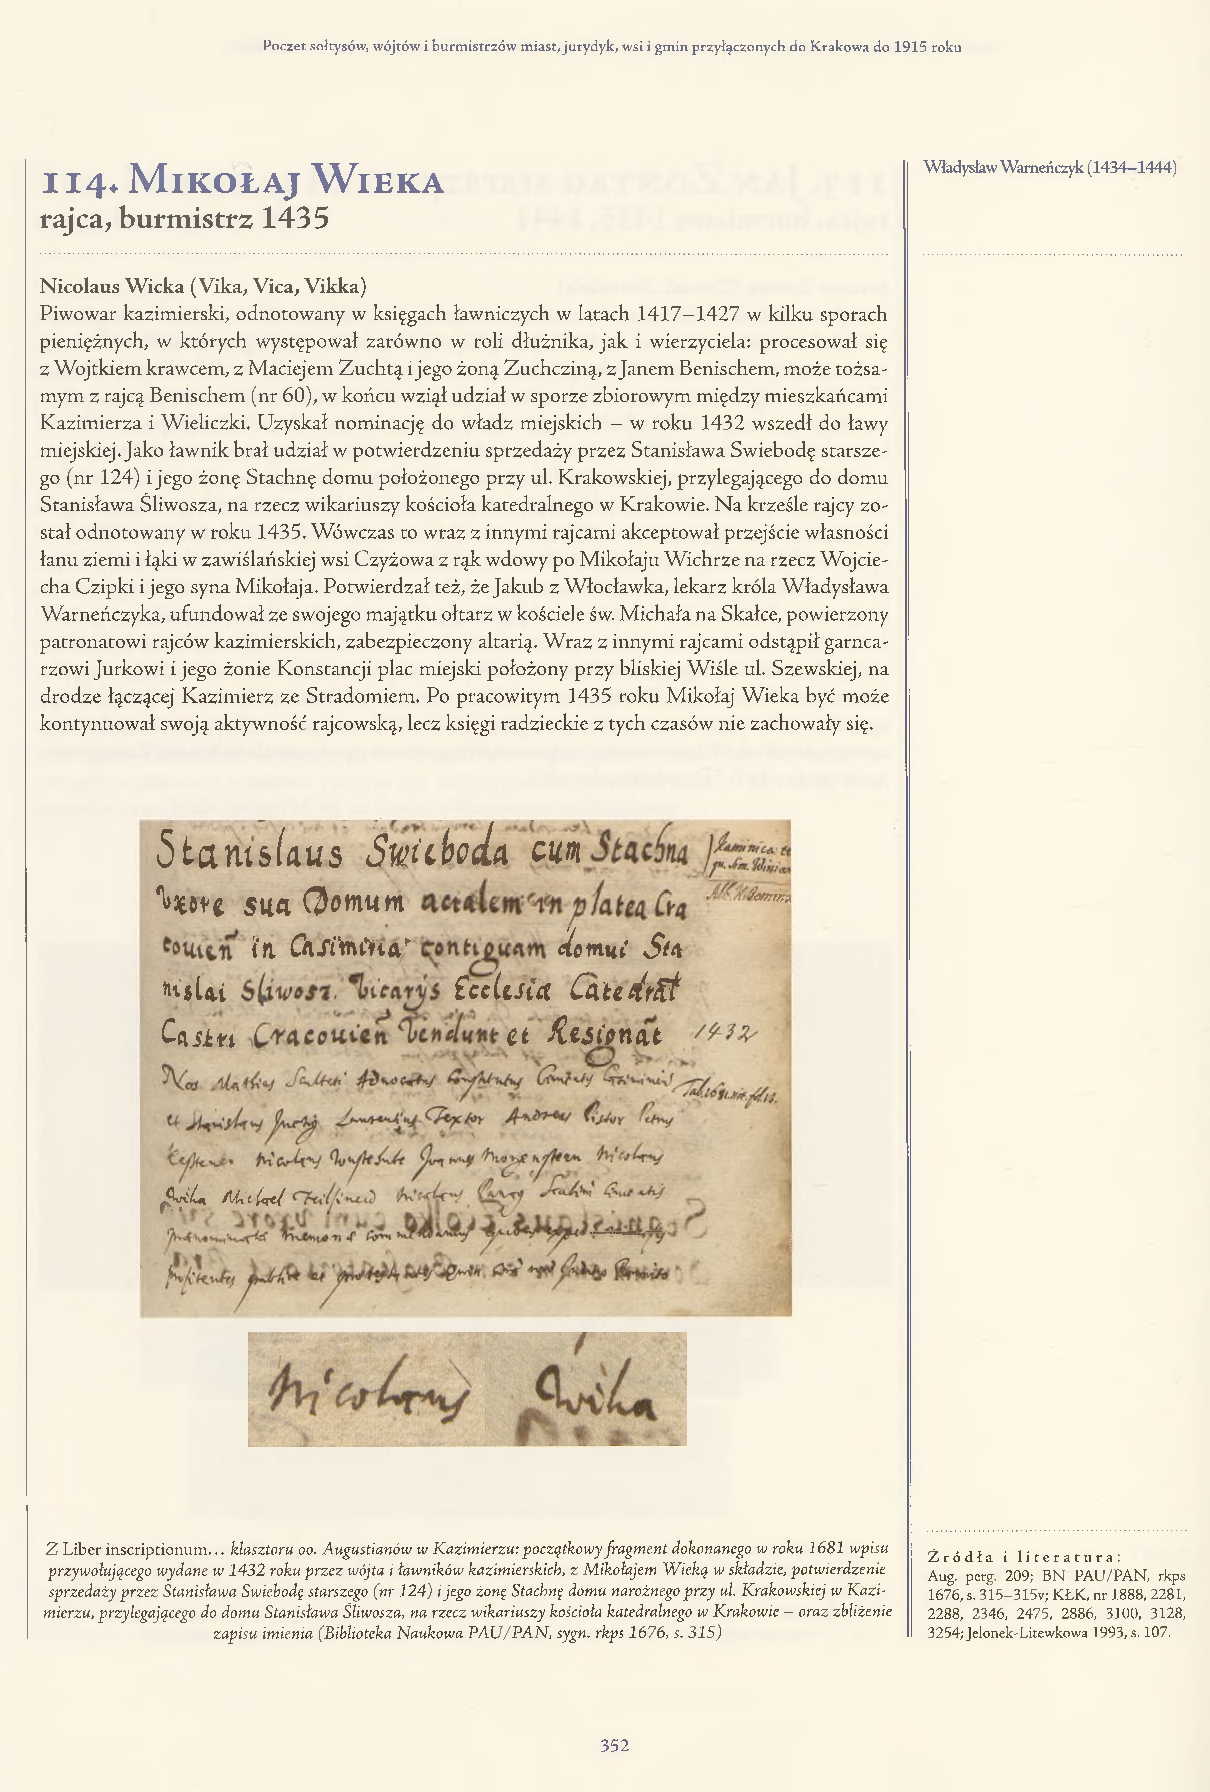 Poczet sołtysów, wójtów i burmistrzów miast, jurydyk, wsi i gmin przyłączonych do Krakowa do 1915 roku
114. Mikołaj Wieka
rajca, burmistrz 1435
Władysław Warneńczyk (1434–1444)
Nicolaus Wicka (Vika, Vica, Vikka)
Piwowar kazimierski, odnotowany w księgach ławniczych w latach 1417–1427 w kilku sporach
pieniężnych, w których występował zarówno w roli dłużnika, jak i wierzyciela: procesował się
z Wojtkiem krawcem, z Maciejem Zuchtą i jego żoną Zuchcziną, z Janem Benischem, może tożsa-
mym z rajcą Benischem (nr 60), w końcu wziął udział w sporze zbiorowym między mieszkańcami
Kazimierza i Wieliczki. Uzyskał nominację do władz miejskich – w roku 1432 wszedł do ławy
miejskiej. Jako ławnik brał udział w potwierdzeniu sprzedaży przez Stanisława Swiebodę starsze-
go (nr 124) i jego żonę Stachnę domu położonego przy ul. Krakowskiej, przylegającego do domu
Stanisława Śliwosza, na rzecz wikariuszy kościoła katedralnego w Krakowie. Na krześle rajcy zo-
stał odnotowany w roku 1435. Wówczas to wraz z innymi rajcami akceptował przejście własności
łanu ziemi i łąki w zawiślańskiej wsi Czyżowa z rąk wdowy po Mikołaju Wichrze na rzecz Wojcie-
cha Czipki i jego syna Mikołaja. Potwierdzał też, że Jakub z Włocławka, lekarz króla Władysława
Warneńczyka, ufundował ze swojego majątku ołtarz w kościele św. Michała na Skałce, powierzony
patronatowi rajców kazimierskich, zabezpieczony altarią. Wraz z innymi rajcami odstąpił garnca-
rzowi Jurkowi i jego żonie Konstancji plac miejski położony przy bliskiej Wiśle ul. Szewskiej, na
drodze łączącej Kazimierz ze Stradomiem. Po pracowitym 1435 roku Mikołaj Wieka być może
kontynuował swoją aktywność rajcowską, lecz księgi radzieckie z tych czasów nie zachowały się.
Stanislaus Swieboda cum Stachna
Vxore sua Domum acialem in platea Cra
couien in Casimiria contiguam domui Sta
nislai Sliwosz. Vicarys Ecclesiæ Catedrat
Castri Cracouien Vendunt et Resignat 1432
Nos Mathias Sculteti Aduocatus
et Stanislaus Laurentius Textor Andreas Pistor Petrus
Nicolaus Nicolaus
Wika Michael Nicolaus Scabini
memoriæ commendamus
profitentes
Nicolaus Wika
Z Liber inscriptionum… klasztoru oo. Augustianów w Kazimierzu: początkowy fragment dokonanego w roku 1681 wpisu
przywołującego wydane w 1432 roku przez wójta i ławników kazimierskich, z Mikołajem Wieką w składzie, potwierdzenie
sprzedaży przez Stanisława Swiebodę starszego (nr 124) i jego żonę Stachnę domu narożnego przy ul. Krakowskiej w Kazi-
mierzu, przylegającego do domu Stanisława Śliwosza, na rzecz wikariuszy kościoła katedralnego w Krakowie – oraz zbliżenie
zapisu imienia (Biblioteka Naukowa PAU/PAN, sygn. rkps 1676, s. 315)
Źródła i literatura:
Aug. perg. 209; BN PAU/PAN, rkps
1676, s. 315–315v; KŁK, nr 1888, 2281,
2288, 2346, 2475, 2886, 3100, 3128,
3254; Jelonek-Litewkowa 1993, s. 107.
352